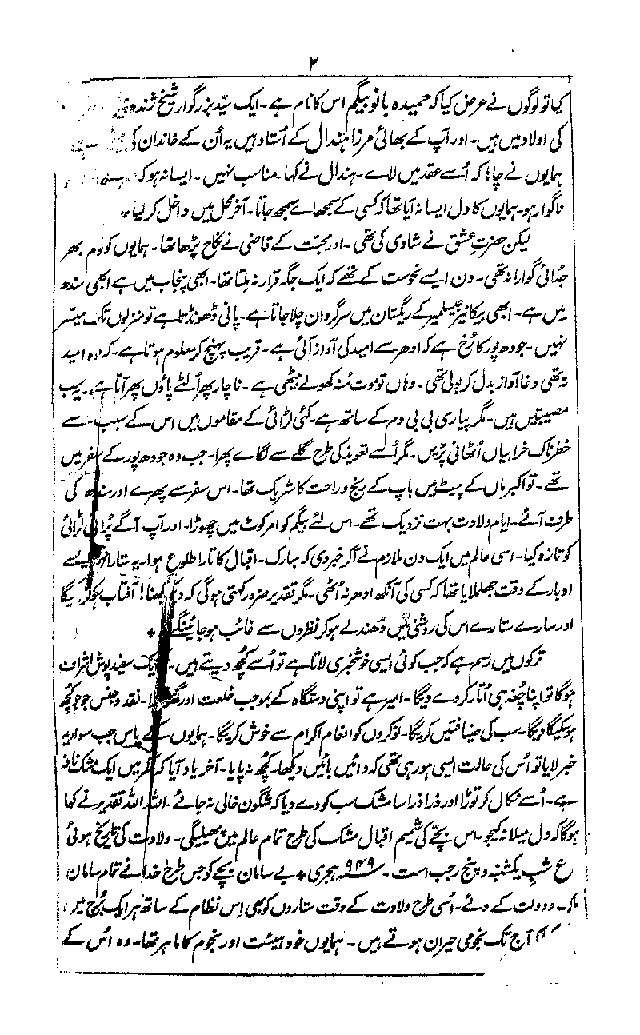 ۲
کیا تو لوگوں نے عرض کیا کہ حمیدہ بانو بیگم اس کا نام ہے۔ ایک سید بزرگوار شیخ
کی اولاد میں ہیں۔ اور آپ کے بھائی مرزا ہندال کے اُستاد ہیں یہ اُن کے خاندان کی
ہمایوں نے چاہا کہ اُسے عقد میں لائے۔ ہندال نے کہا مناسب نہیں۔ ایسا نہ ہو کہ
ناگوار ہو۔ ہمایوں کا دل ایسا نہ آیا تھا کہ کسی کے سمجھائے سمجھ جاتا۔ آخر محل میں داخل کر لیا ٭
لیکن حضرت عشق نے شادی کی تھی۔ اور محبت کے قاضی نے نکاح پڑھا تھا۔ ہمایوں کو دم بھر
جدائی گوارا نہ تھی۔ دن ایسے نحوست کے تھے کہ ایک جگہ قرار نہ ملتا تھا۔ ابھی پنجاب میں ہے ابھی سندھ
میں ہے۔ ابھی بیکانیر جیسلمیر کے ریگستان میں سرگردان چلا جاتا ہے۔ پانی ڈھونڈتا ہے تو منزلوں تک میسر
نہیں۔ جودھپور کا رُخ ہے کہ ادھر سے امید کی آواز آئی ہے۔ قریب پہنچ کر معلوم ہوتا ہے۔ کہ وہ امید
نہ تھی دغا آواز بدل کر بولی تھی۔ وہاں تو موت مُنہ کھولے بیٹھی ہے۔ ناچار پھر اُلٹے پاؤں پھر آتا ہے۔ یہ سب
مصیبتیں ہیں۔ مگر پیاری بی بی دم کے ساتھ ہے۔ کئی لڑائی کے مقاموں میں اس کے سبب سے
خطرناک خرابیاں اُٹھانی پڑیں۔ مگر اُسے تعویذ کی طرح گلے سے لگائے پھرا۔ جب وہ جودھپور کے سفر میں
تھے۔ تو اکبر ماں کے پیٹ میں باپ کے رنج و راحت کا شریک تھا۔ اس سفر سے پھرے اور سندھ کی
طرف آئے۔ ایام ولادت بہت نزدیک تھے۔ اس لئے بیگم کو امرکوٹ میں چھوڑا۔ اور آپ آگے پُرانی لڑائی
کو تازہ کیا۔ اسی عالم میں ایک دن ملازم نے آکر خبر دی کہ مبارک۔ اقبال کا تارا طلوع ہوا یہ ستارہ ایسے
ادبار کے وقت جھلملایا تھا کہ کسی کی آنکھ ادھر نہ اُٹھی۔ مگر تقدیر ضرور کہتی ہوگی کہ دیکھنا! آفتاب ہو کر چمکیگا
اور سارے ستارے اس کی روشنی میں دھندلے ہو کر نظروں سے غائب ہو جائینگے ٭
ترکوں میں رسم ہے کہ جب کوئی ایسی خوشخبری لاتا ہے تو اُسے کچھ دیتے ہیں۔ ایک سفید پوش اشراف
ہوگا تو اپنا چغہ ہی اُتار کر دے دیگا۔ امیر ہے تو اپنی دستگاہ کے بموجب خلعت اور گھوڑا۔ نقد و جنس جو کچھ
ہو سکیگا دیگا۔ سب کی ضیافتیں کریگا۔ نوکروں کو انعام اکرام سے خوش کریگا۔ ہمایوں کے پاس جب سوار یہ
خبر لایا تو اُس کی حالت ایسی ہو رہی تھی کہ دائیں بائیں دیکھا۔ کچھ نہ پایا۔ آخر یاد آیا کہ کمر میں ایک مشک نافہ
ہے۔ اُسے نکال کر توڑا اور ذرا ذرا سا مشک سب کو دے دیا کہ شگون خالی نہ جائے۔ اللہ اللہ تقدیر نے کہا
ہوگا کہ دل میلا نہ کیجو۔ اس بچے کی شمیم اقبال مشک کی طرح تمام عالم میں پھیلیگی۔ ولادت کی تاریخ ہوئی
ع شب یکشنبہ و پنج رجب است۔ ۹۴۹ ہجری ٭ بے سامان بچے کو جس طرح خدا نے تمام سامان
ملک و دولت کے دئے۔ اُسی طرح ولادت کے وقت ستاروں کو بھی اس نظام کے ساتھ ہر ایک بُرج میں
آج تک نجومی حیران ہوتے ہیں۔ ہمایوں خود ہیئت اور نجوم کا ماہر تھا۔ وہ اُس کے